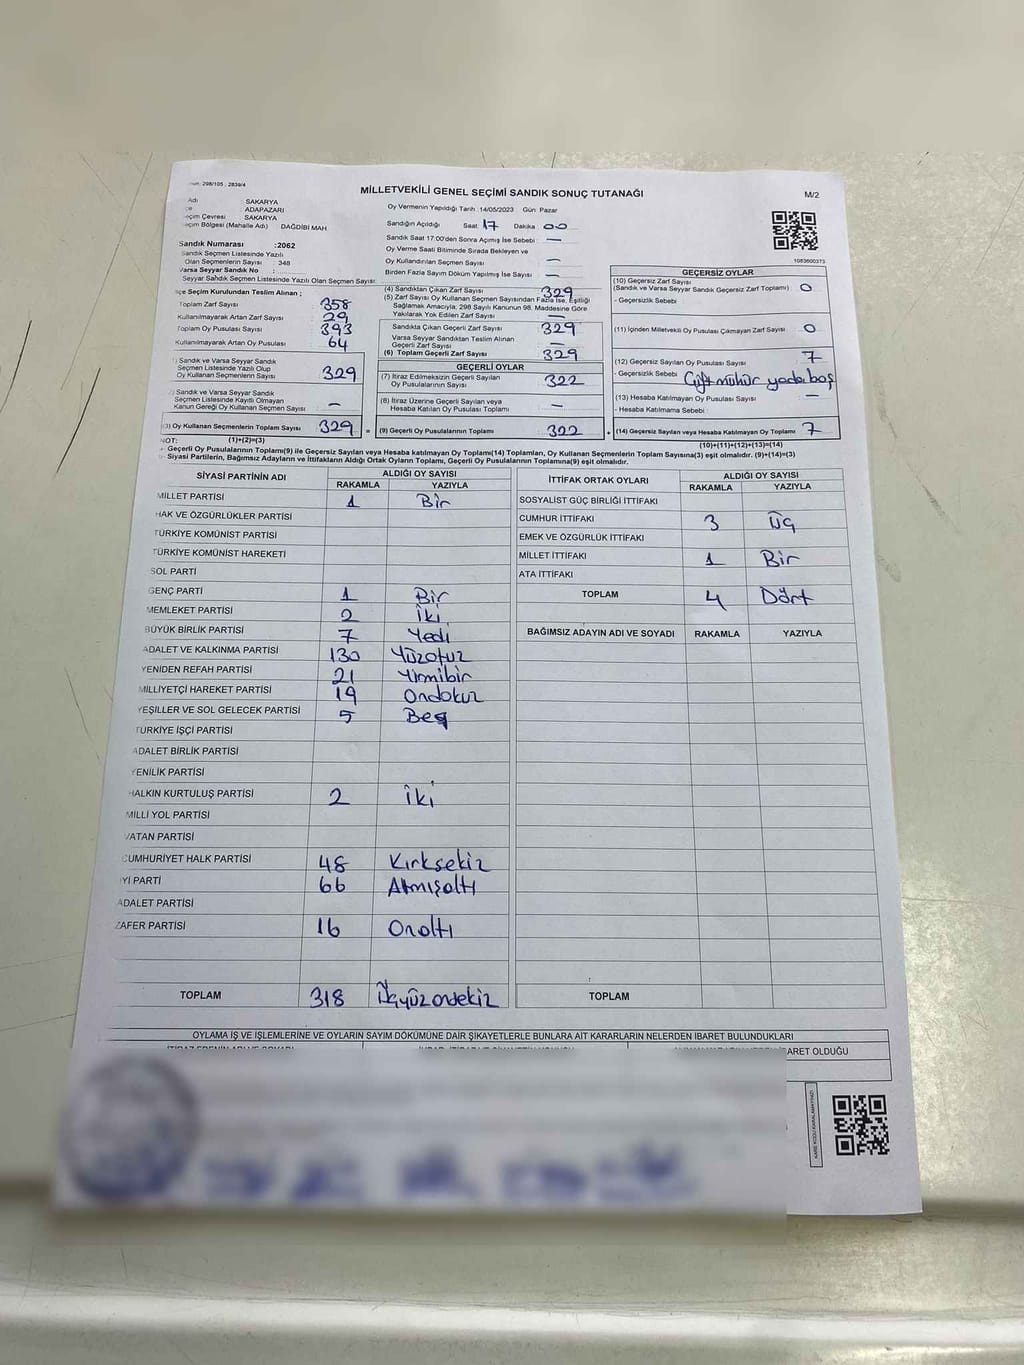 298/105 , 2839/4
MİLLETVEKİLİ GENEL SEÇİMİ SANDIK SONUÇ TUTANAĞI
M/2
Adı : SAKARYA
: ADAPAZARI
eçim Çevresi : SAKARYA
eçim Bölgesi (Mahalle Adı) DAĞDİBİ MAH
Sandık Numarası :2062
Sandık Seçmen Listesinde Yazılı
Olan Seçmenlerin Sayısı : 348
Varsa Seyyar Sandık No :
Seyyar Sandık Seçmen Listesinde Yazılı Olan Seçmen Sayısı:
Oy Vermenin Yapıldığı Tarih :14/05/2023 Gün: Pazar
Sandığın Açıldığı Saat 17 Dakika 00
Sandık Saat 17:00'den Sonra Açımış İse Sebebi : —
Oy Verme Saati Bitiminde Sırada Bekleyen ve
Oy Kullandırılan Seçmen Sayısı : —
Birden Fazla Sayım Döküm Yapılmış İse Sayısı : —
1083600373
İlçe Seçim Kurulundan Teslim Alınan ;
Toplam Zarf Sayısı : 358
Kullanılmayarak Artan Zarf Sayısı : 29
Toplam Oy Pusulası Sayısı : 393
Kullanılmayarak Artan Oy Pusulası : 64
(1) Sandık ve Varsa Seyyar Sandık
Seçmen Listesinde Yazılı Olup
Oy Kullanan Seçmenlerin Sayısı : 329
(2) Sandık ve Varsa Seyyar Sandık
Seçmen Listesinde Kaydı Olmayan
Kanun Gereği Oy Kullanan Seçmen Sayısı : —
(3) Oy Kullanan Seçmenlerin Toplam Sayısı : 329 =
(4) Sandıktan Çıkan Zarf Sayısı : 329
(5) Zarf Sayısı Oy Kullanan Seçmen Sayısından Fazla İse, Eşitliği
Sağlamak Amacıyla; 298 Sayılı Kanunun 98. Maddesine Göre
Yakılarak Yok Edilen Zarf Sayısı : —
Sandıkta Çıkan Geçerli Zarf Sayısı : 329
Varsa Seyyar Sandıktan Teslim Alınan
Geçerli Zarf Sayısı : —
(6) Toplam Geçerli Zarf Sayısı : 329
GEÇERLİ OYLAR
(7) İtiraz Edilmeksizin Geçerli Sayılan
Oy Pusulalarının Sayısı : 322
(8) İtiraz Üzerine Geçerli Sayılan veya
Hesaba Katılan Oy Pusulası Toplamı : —
(9) Geçerli Oy Pusulalarının Toplamı : 322 +
GEÇERSİZ OYLAR
(10) Geçersiz Zarf Sayısı
(Sandık ve Varsa Seyyar Sandık Geçersiz Zarf Toplamı) : 0
- Geçersizlik Sebebi :
(11) İçinden Milletvekili Oy Pusulası Çıkmayan Zarf Sayısı : 0
(12) Geçersiz Sayılan Oy Pusulası Sayısı : 7
- Geçersizlik Sebebi : Çift mühür yada boş
(13) Hesaba Katılmayan Oy Pusulası Sayısı : —
- Hesaba Katılmama Sebebi :
(14) Geçersiz Sayılan veya Hesaba Katılmayan Oy Toplamı : 7
NOT: (1)+(2)=(3) (10)+(11)+(12)+(13)=(14)
- Geçerli Oy Pusulalarının Toplamı(9) ile Geçersiz Sayılan veya Hesaba katılmayan Oy Toplamı(14) Toplamları, Oy Kullanan Seçmenlerin Toplam Sayısına(3) eşit olmalıdır. (9)+(14)=(3)
- Siyasi Partilerin, Bağımsız Adayların ve İttifakların Aldığı Ortak Oyların Toplamı, Geçerli Oy Pusulalarının Toplamına(9) eşit olmalıdır.
SİYASİ PARTİNİN ADI ALDIĞI OY SAYISI
RAKAMLA YAZIYLA
MİLLET PARTİSİ 1 Bir
HAK VE ÖZGÜRLÜKLER PARTİSİ
TÜRKİYE KOMÜNİST PARTİSİ
TÜRKİYE KOMÜNİST HAREKETİ
SOL PARTİ
GENÇ PARTİ 1 Bir
MEMLEKET PARTİSİ 2 İki
BÜYÜK BİRLİK PARTİSİ 7 Yedi
ADALET VE KALKINMA PARTİSİ 130 Yüzotuz
YENİDEN REFAH PARTİSİ 21 Yirmibir
MİLLİYETÇİ HAREKET PARTİSİ 19 Ondokuz
YEŞİLLER VE SOL GELECEK PARTİSİ 5 Beş
TÜRKİYE İŞÇİ PARTİSİ
ADALET BİRLİK PARTİSİ
YENİLİK PARTİSİ
HALKIN KURTULUŞ PARTİSİ 2 İki
MİLLİ YOL PARTİSİ
VATAN PARTİSİ
CUMHURİYET HALK PARTİSİ 48 Kırksekiz
İYİ PARTİ 66 Atmışaltı
ADALET PARTİSİ
ZAFER PARTİSİ 16 Onaltı
TOPLAM 318 Üçyüzonsekiz
İTTİFAK ORTAK OYLARI ALDIĞI OY SAYISI
RAKAMLA YAZIYLA
SOSYALİST GÜÇ BİRLİĞİ İTTİFAKI
CUMHUR İTTİFAKI 3 Üç
EMEK VE ÖZGÜRLÜK İTTİFAKI
MİLLET İTTİFAKI 1 Bir
ATA İTTİFAKI
TOPLAM 4 Dört
BAĞIMSIZ ADAYIN ADI VE SOYADI RAKAMLA YAZIYLA
TOPLAM
OYLAMA İŞ VE İŞLEMLERİNE VE OYLARIN SAYIM DÖKÜMÜNE DAİR ŞİKAYETLERLE BUNLARA AİT KARARLARIN NELERDEN İBARET BULUNDUKLARI
BARET OLDUĞU